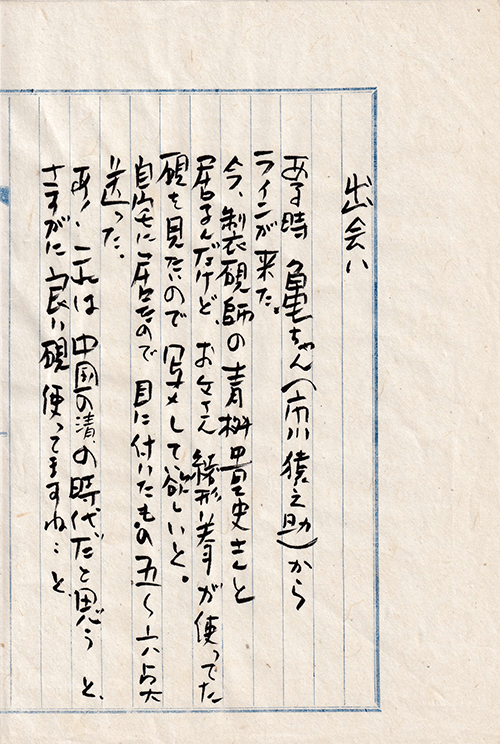 出会い
ある時 亀ちゃん(市川猿之助)から
ラインが来た。
今、製硯師の青栁貴史さんと
居るんだけど、お父さん 緒形拳が使ってた
硯を見たいので 写メして欲しいと。
自宅に居たので 目に付いたもの 五〜六点
送った。
あ、これは 中国の清の時代だと思う と、
さすがに良い硯 使ってますね…と